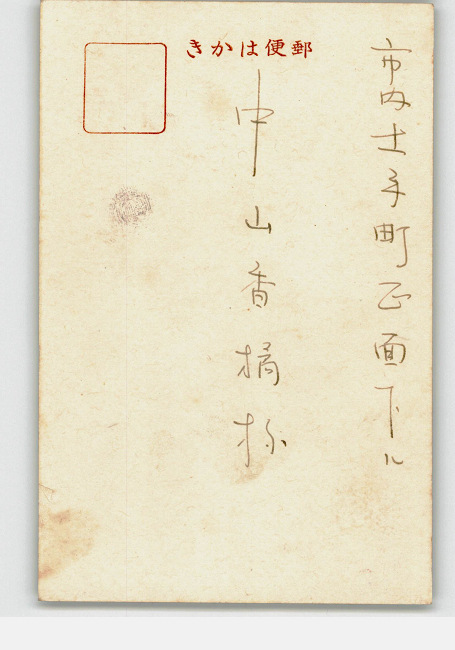 郵便はかき
市内土手町正面下ル
中山香橘様